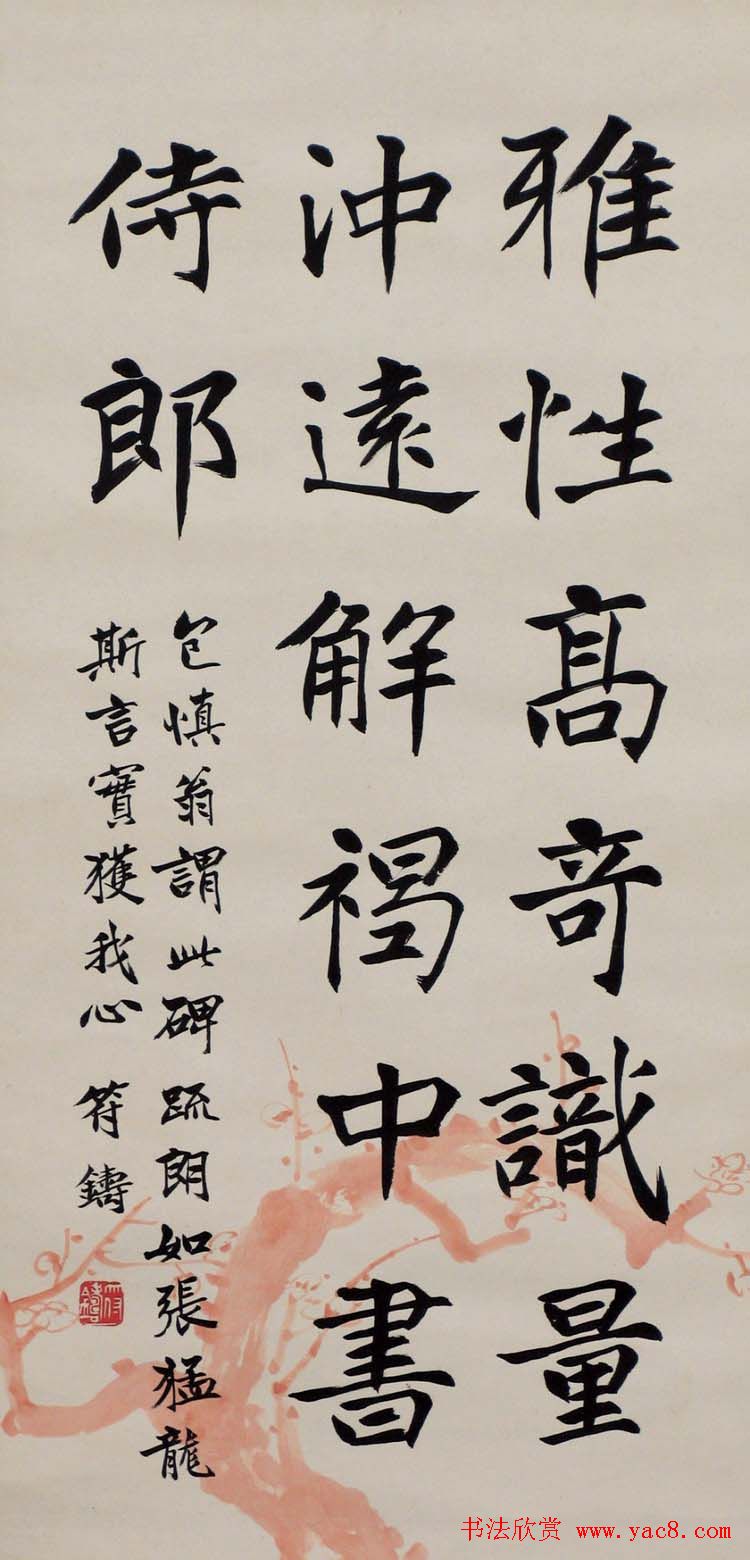 雅性高奇識量
沖遠解褐中書
侍郎
包慎翁謂此碑疏朗如張猛龍
斯言實獲我心 符鑄
符鑄
书法欣赏 www.yac8.com